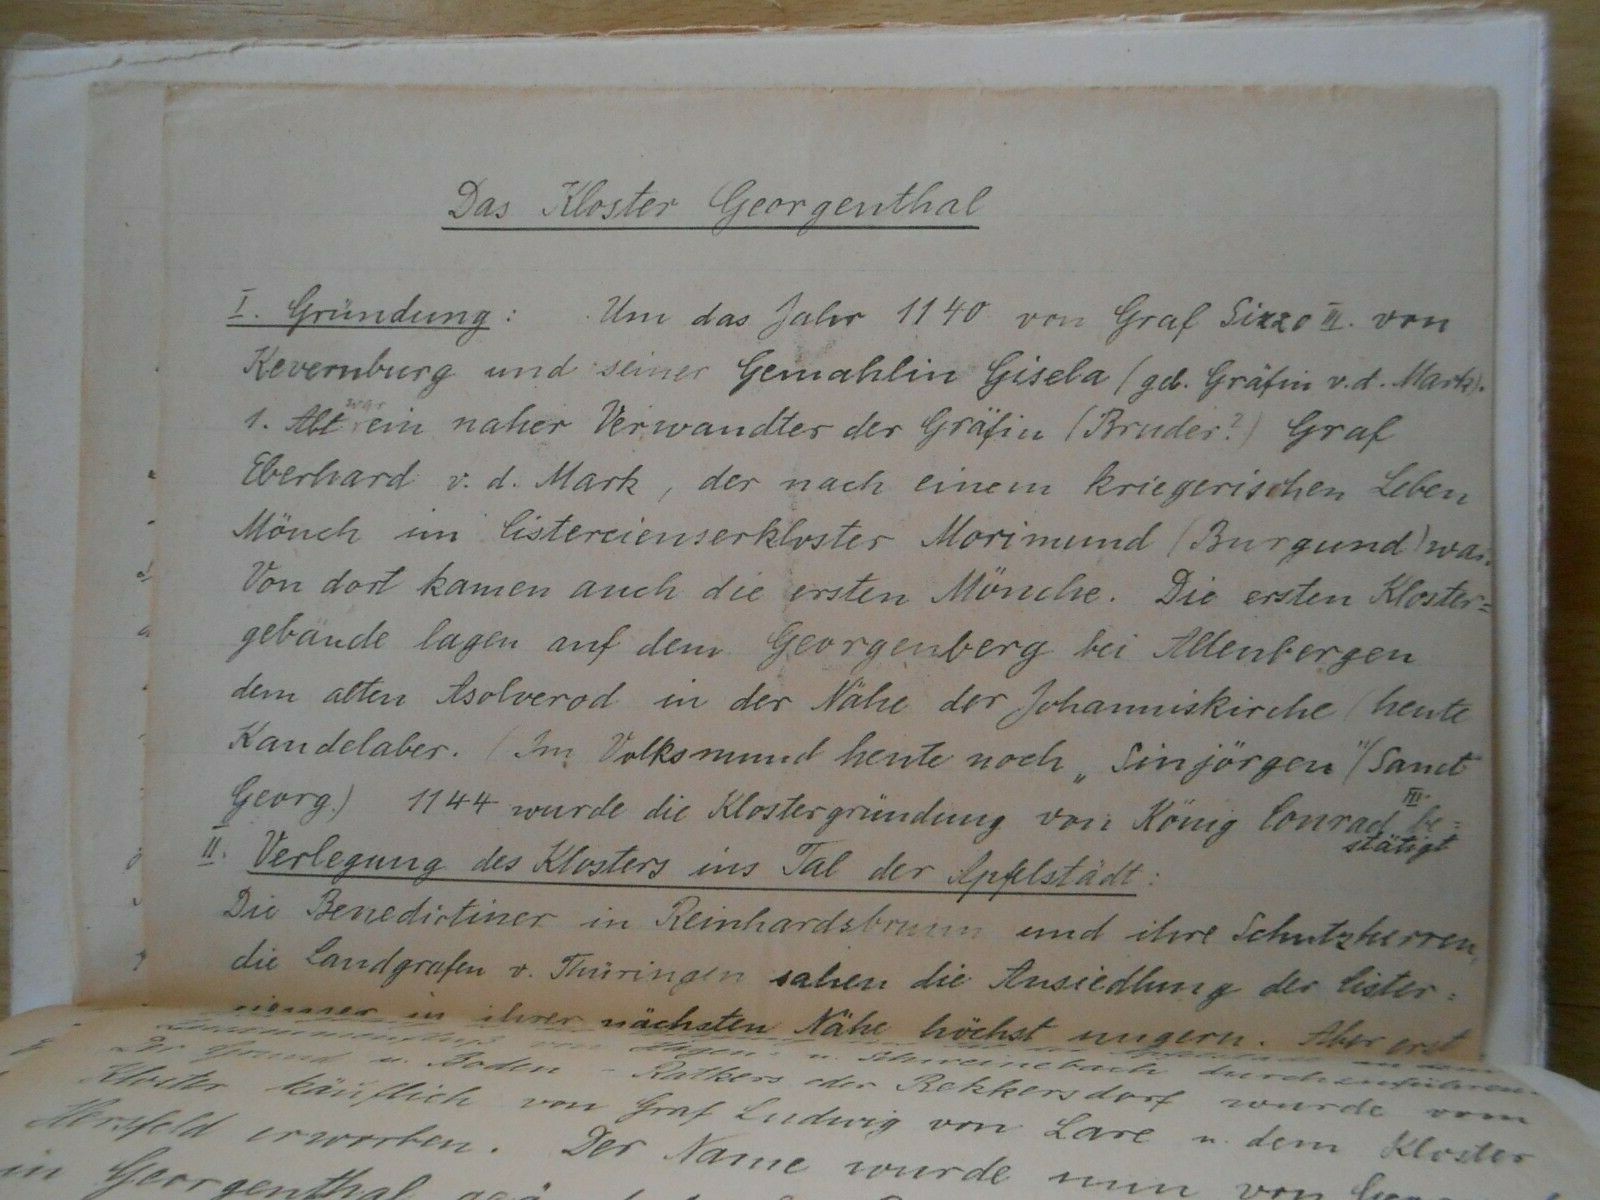 Das Kloster Georgenthal
I. Gründung: Um das Jahr 1140 von Graf Sizzo III. von
Kevernburg und seiner Gemahlin Gisela (geb. Gräfin v. d. Mark).
1. Abt war ein naher Verwandter der Gräfin (Bruder?) Graf
Eberhard v. d. Mark, der nach einem kriegerischen Leben
Mönch im Cistercienserkloster Morimund (Burgund) war.
Von dort kamen auch die ersten Mönche. Die ersten Kloster=
gebäude lagen auf dem Georgenberg bei Altenbergen
dem alten Asolverod in der Nähe der Johanniskirche (heute
Kandelaber. (Im Volksmund heute noch „Sinjörgen"/(Sanct
Georg.) 1144 wurde die Klostergründung von König Conrad III. be=
stätigt
II. Verlegung des Klosters ins Tal der Apfelstädt:
Die Benedictiner in Reinhardsbrunn und ihre Schutzherren,
die Landgrafen v. Thüringen sahen die Ansiedlung der Cister=
cienser in ihrer nächsten Nähe höchst ungern. Aber erst
durchzuführen
Der Grund u. Boden - Ratkers oder Rekkersdorf wurde vom
Kloster käuflich von Graf Ludwig von Lare u. dem Kloster
Hersfeld erworben. Der Name wurde nun von
in Georgenthal